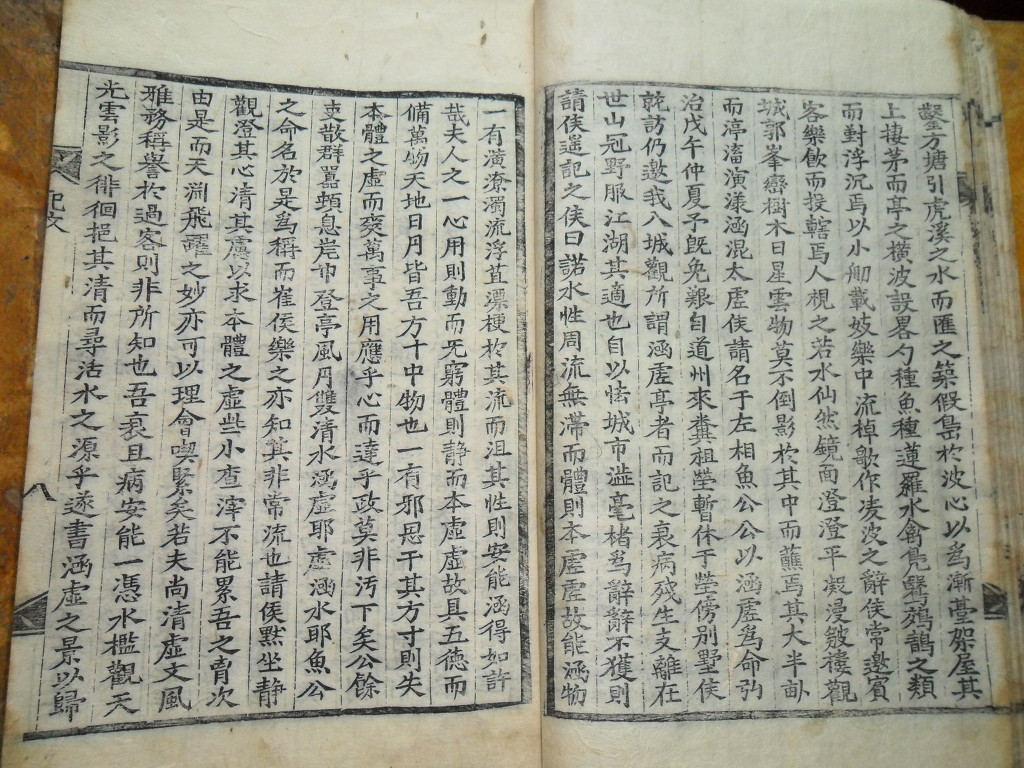 鑿方塘引虎溪之水而匯之築假島於波心以爲漸臺架屋其
上捿茅而亭之橫波設畧勺種魚種蓮羅水禽鳧鷖鵁鶄之類
而對浮沉焉以小舠載妓樂中流棹歌作凌波之辭侯常邀賓
客樂飮而投轄焉人視之若水仙然鏡面澄澄平凝漫皴褸觀
城郭峯巒樹木日星雲物莫不倒影於其中而蘸焉其大半畝
而渟滀演漾涵混太虛侯請名于左相魚公公以涵虛爲命弘
治戊午仲夏予旣免艱自道州來糞祖塋暫休于塋傍別墅侯
乾訪仍邀我八城觀所謂涵虛亭者而記之衰病殘生支離在
世山冠野服江湖其適也自以怯城市澁毫楮爲辭辭不獲則
請侯遥記之侯曰諾水性周流無滯而體則本虛虛故能涵物
一有潢潦濁流浮苴漂梗於其流而沮其性則安能涵得如許
哉夫人之一心用則動而旡窮體則静而本虛虛故具五德而
備萬物天地日月皆吾方寸中物也一有邪思干其方寸則失
本體之虛而奕萬事之用應乎心而達乎政莫非汚下矣公餘
吏散群嚚頓息岸巾登亭風月雙清水涵虛耶虛涵水耶魚公
之命名於是爲稱而崔侯樂之亦知其非常流也請侯黙坐静
觀澄其心清其慮以求本體之虛些小査滓不能累吾之胷次
由是而天淵飛躍之妙亦可以理會喫緊矣若夫尚清虛文風
雅務稱譽於過客則非所知也吾衰且病安能一憑水檻觀天
光雲影之徘徊挹其清而尋活水之源乎遂書涵虛之景以歸
記文
八